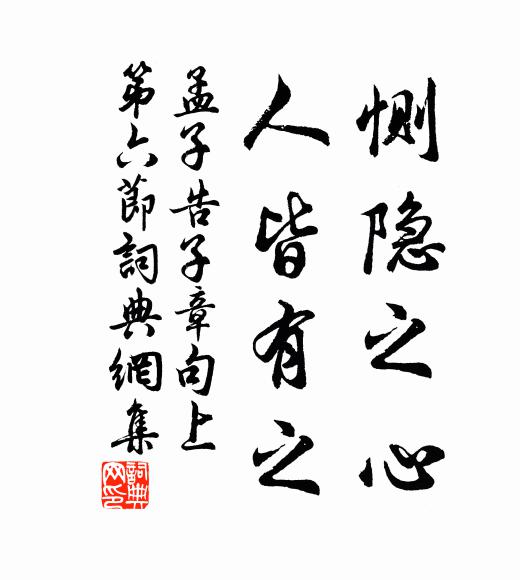 惻隐之心
人皆有之
孟子告子章句上
第六節詞典網集
詞典
网印